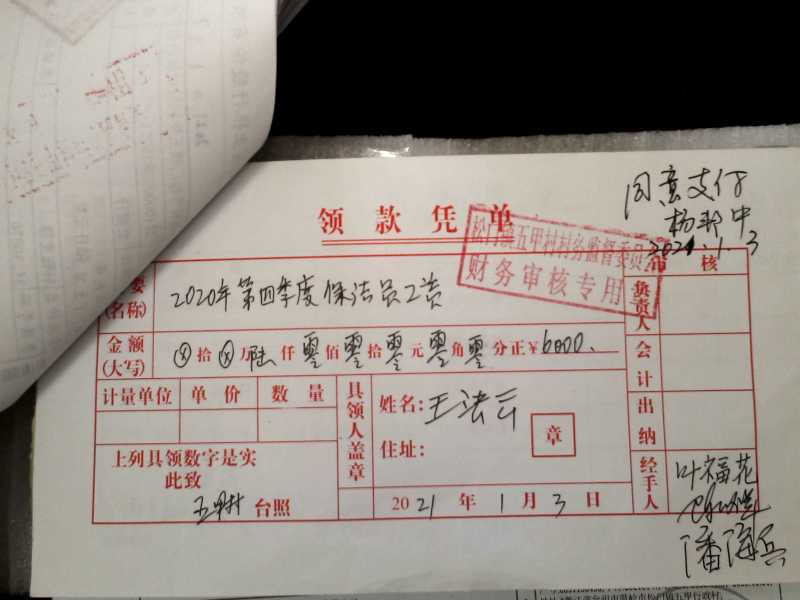 同意支付
2021.1.3
领款凭单
松门镇五甲村村务监督委员会
财务审核专用
审核
(名称) 2020年第四季度保洁员工资
金额(大写) ⊗拾⊗万陆仟零佰零拾零元零角零分正¥6000.
计量单位 单价 数量
上列具领数字是实
此致
五甲村 台照
具领人盖章
姓名:王法云
住址:
章
2021年1月3日
负责人
会计
出纳
经手人
叶福花
潘海兵